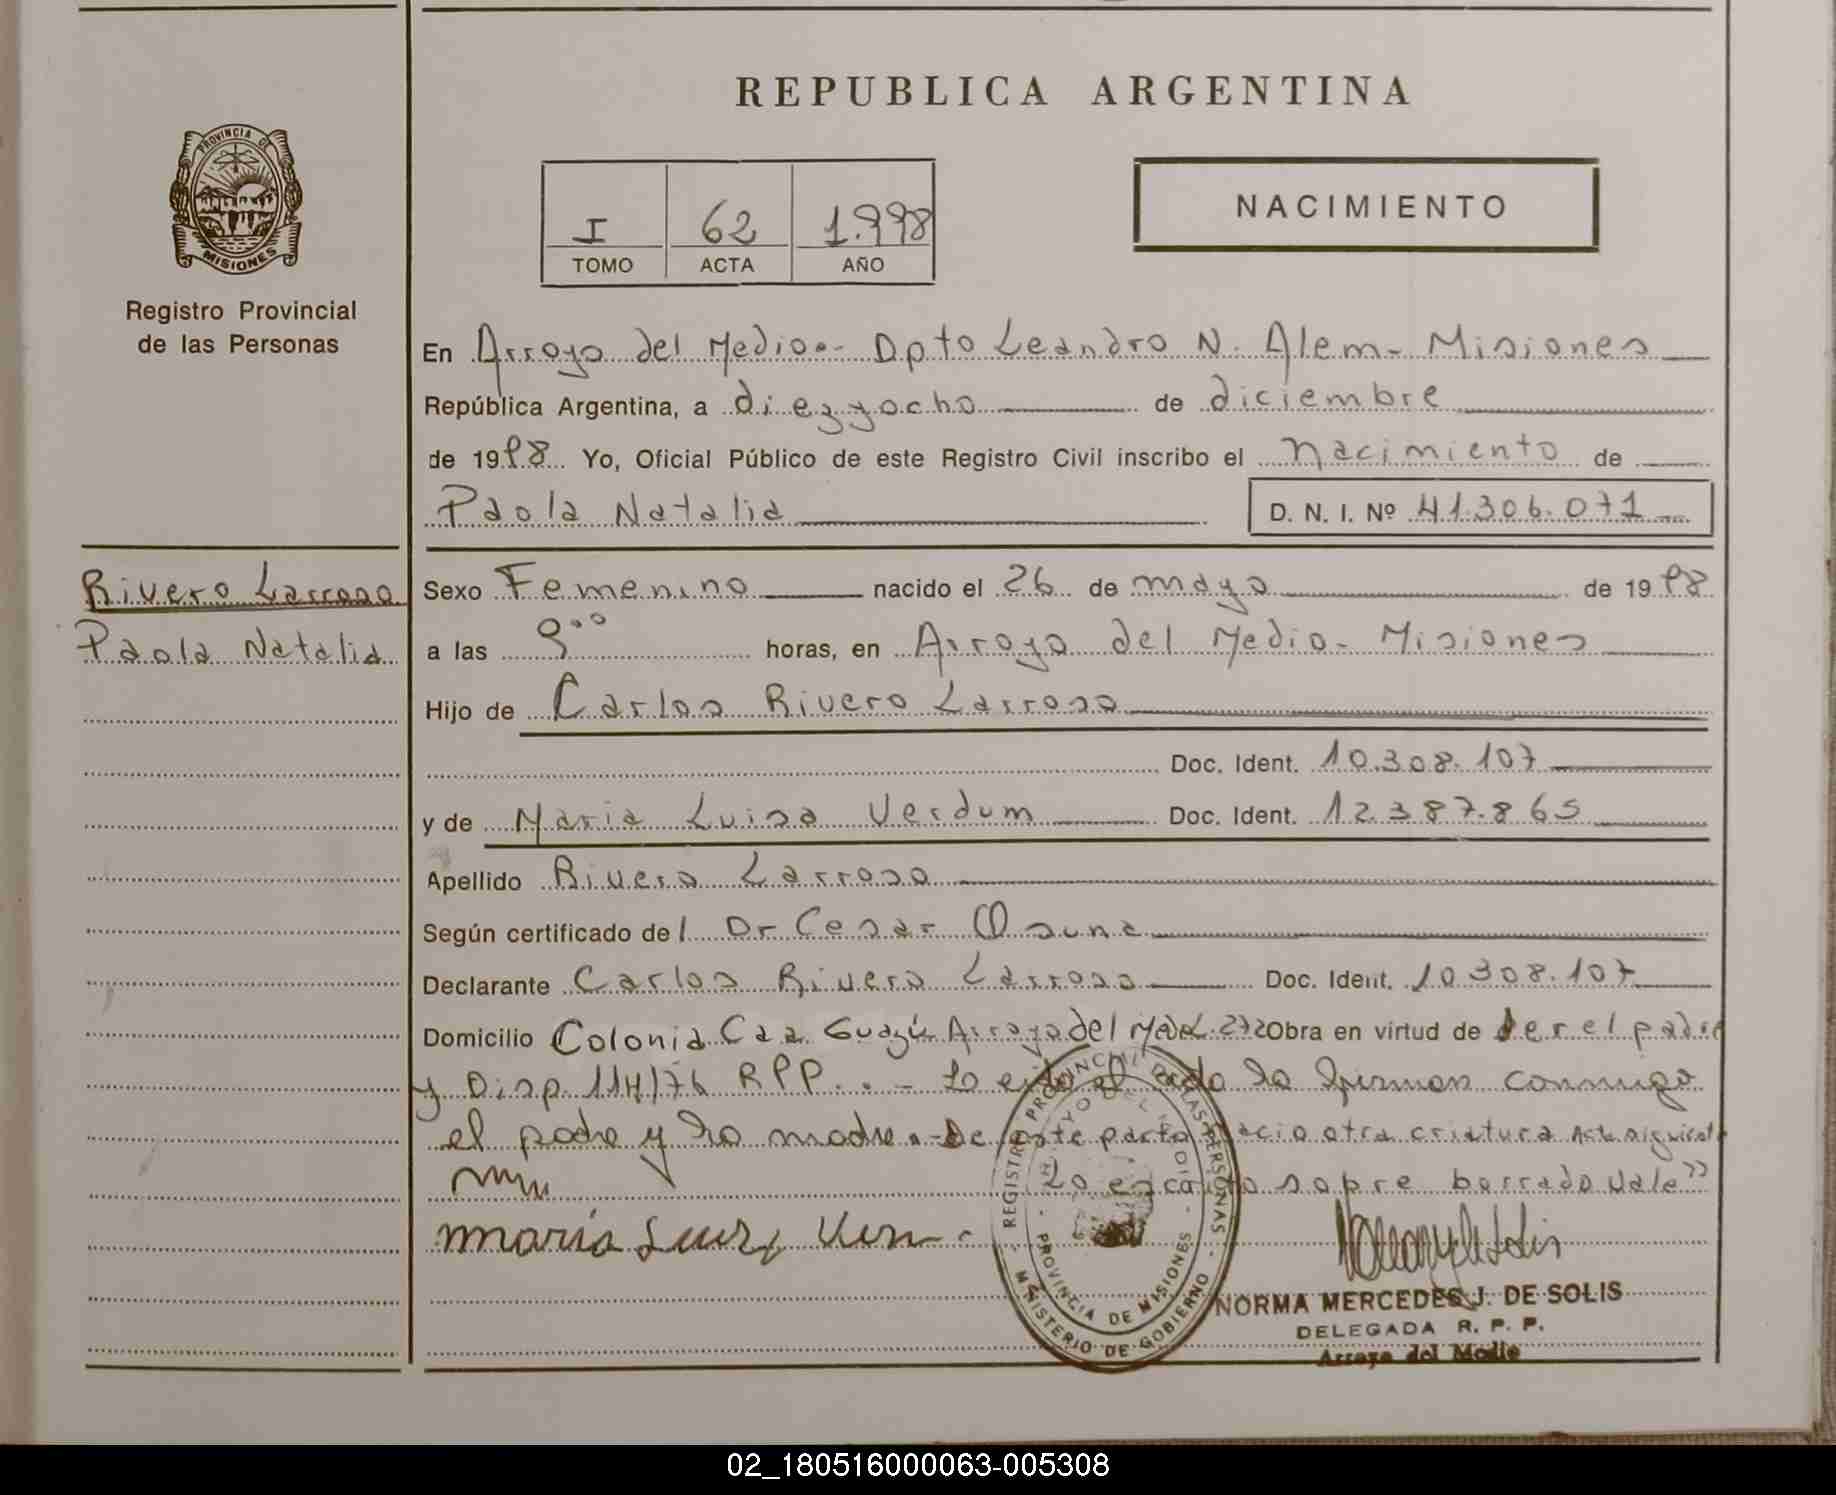 REPUBLICA ARGENTINA
PROVINCIA DE
MISIONES
Registro Provincial
de las Personas
I 62 1.998
TOMO ACTA AÑO
NACIMIENTO
En Arroyo del Medio.- Dpto Leandro N. Alem- Misiones
República Argentina, a diezyocho de diciembre
de 1998 Yo, Oficial Público de este Registro Civil inscribo el nacimiento de
Paola Natalia D. N. I. Nº 41.306.071
Rivero Larroso
Paola Natalia
Sexo Femenino nacido el 26 de mayo de 1998
a las 9°° horas, en Arroyo del Medio- Misiones
Hijo de Carlos Rivero Larroso
Doc. Ident. 10.308.107
y de Maria Luisa Verdum Doc. Ident. 12.387.865
Apellido Rivero Larroso
Según certificado del Dr Cesar Osuna
Declarante Carlos Rivero Larroso Doc. Ident. 10.308.107
Domicilio Colonia Caa Guazú Arroyo del Obra en virtud de ser el padre
y Disp. 114/76 RPP. . - acta la firman conmigo
el padre y la madre.- De este parto nacio otra criatura Acta siguiente
Lo escrito sobre borrado Vale"
maria Luiza Ver
REGISTRO PROVINCIAL DE LAS PERSONAS
MINISTERIO DE GOBIERNO
ARROYO DEL MEDIO
PROVINCIA DE MISIONES
NORMA MERCEDES J. DE SOLIS
DELEGADA R. P. P.
Arroyo del Medio
02_180516000063-005308